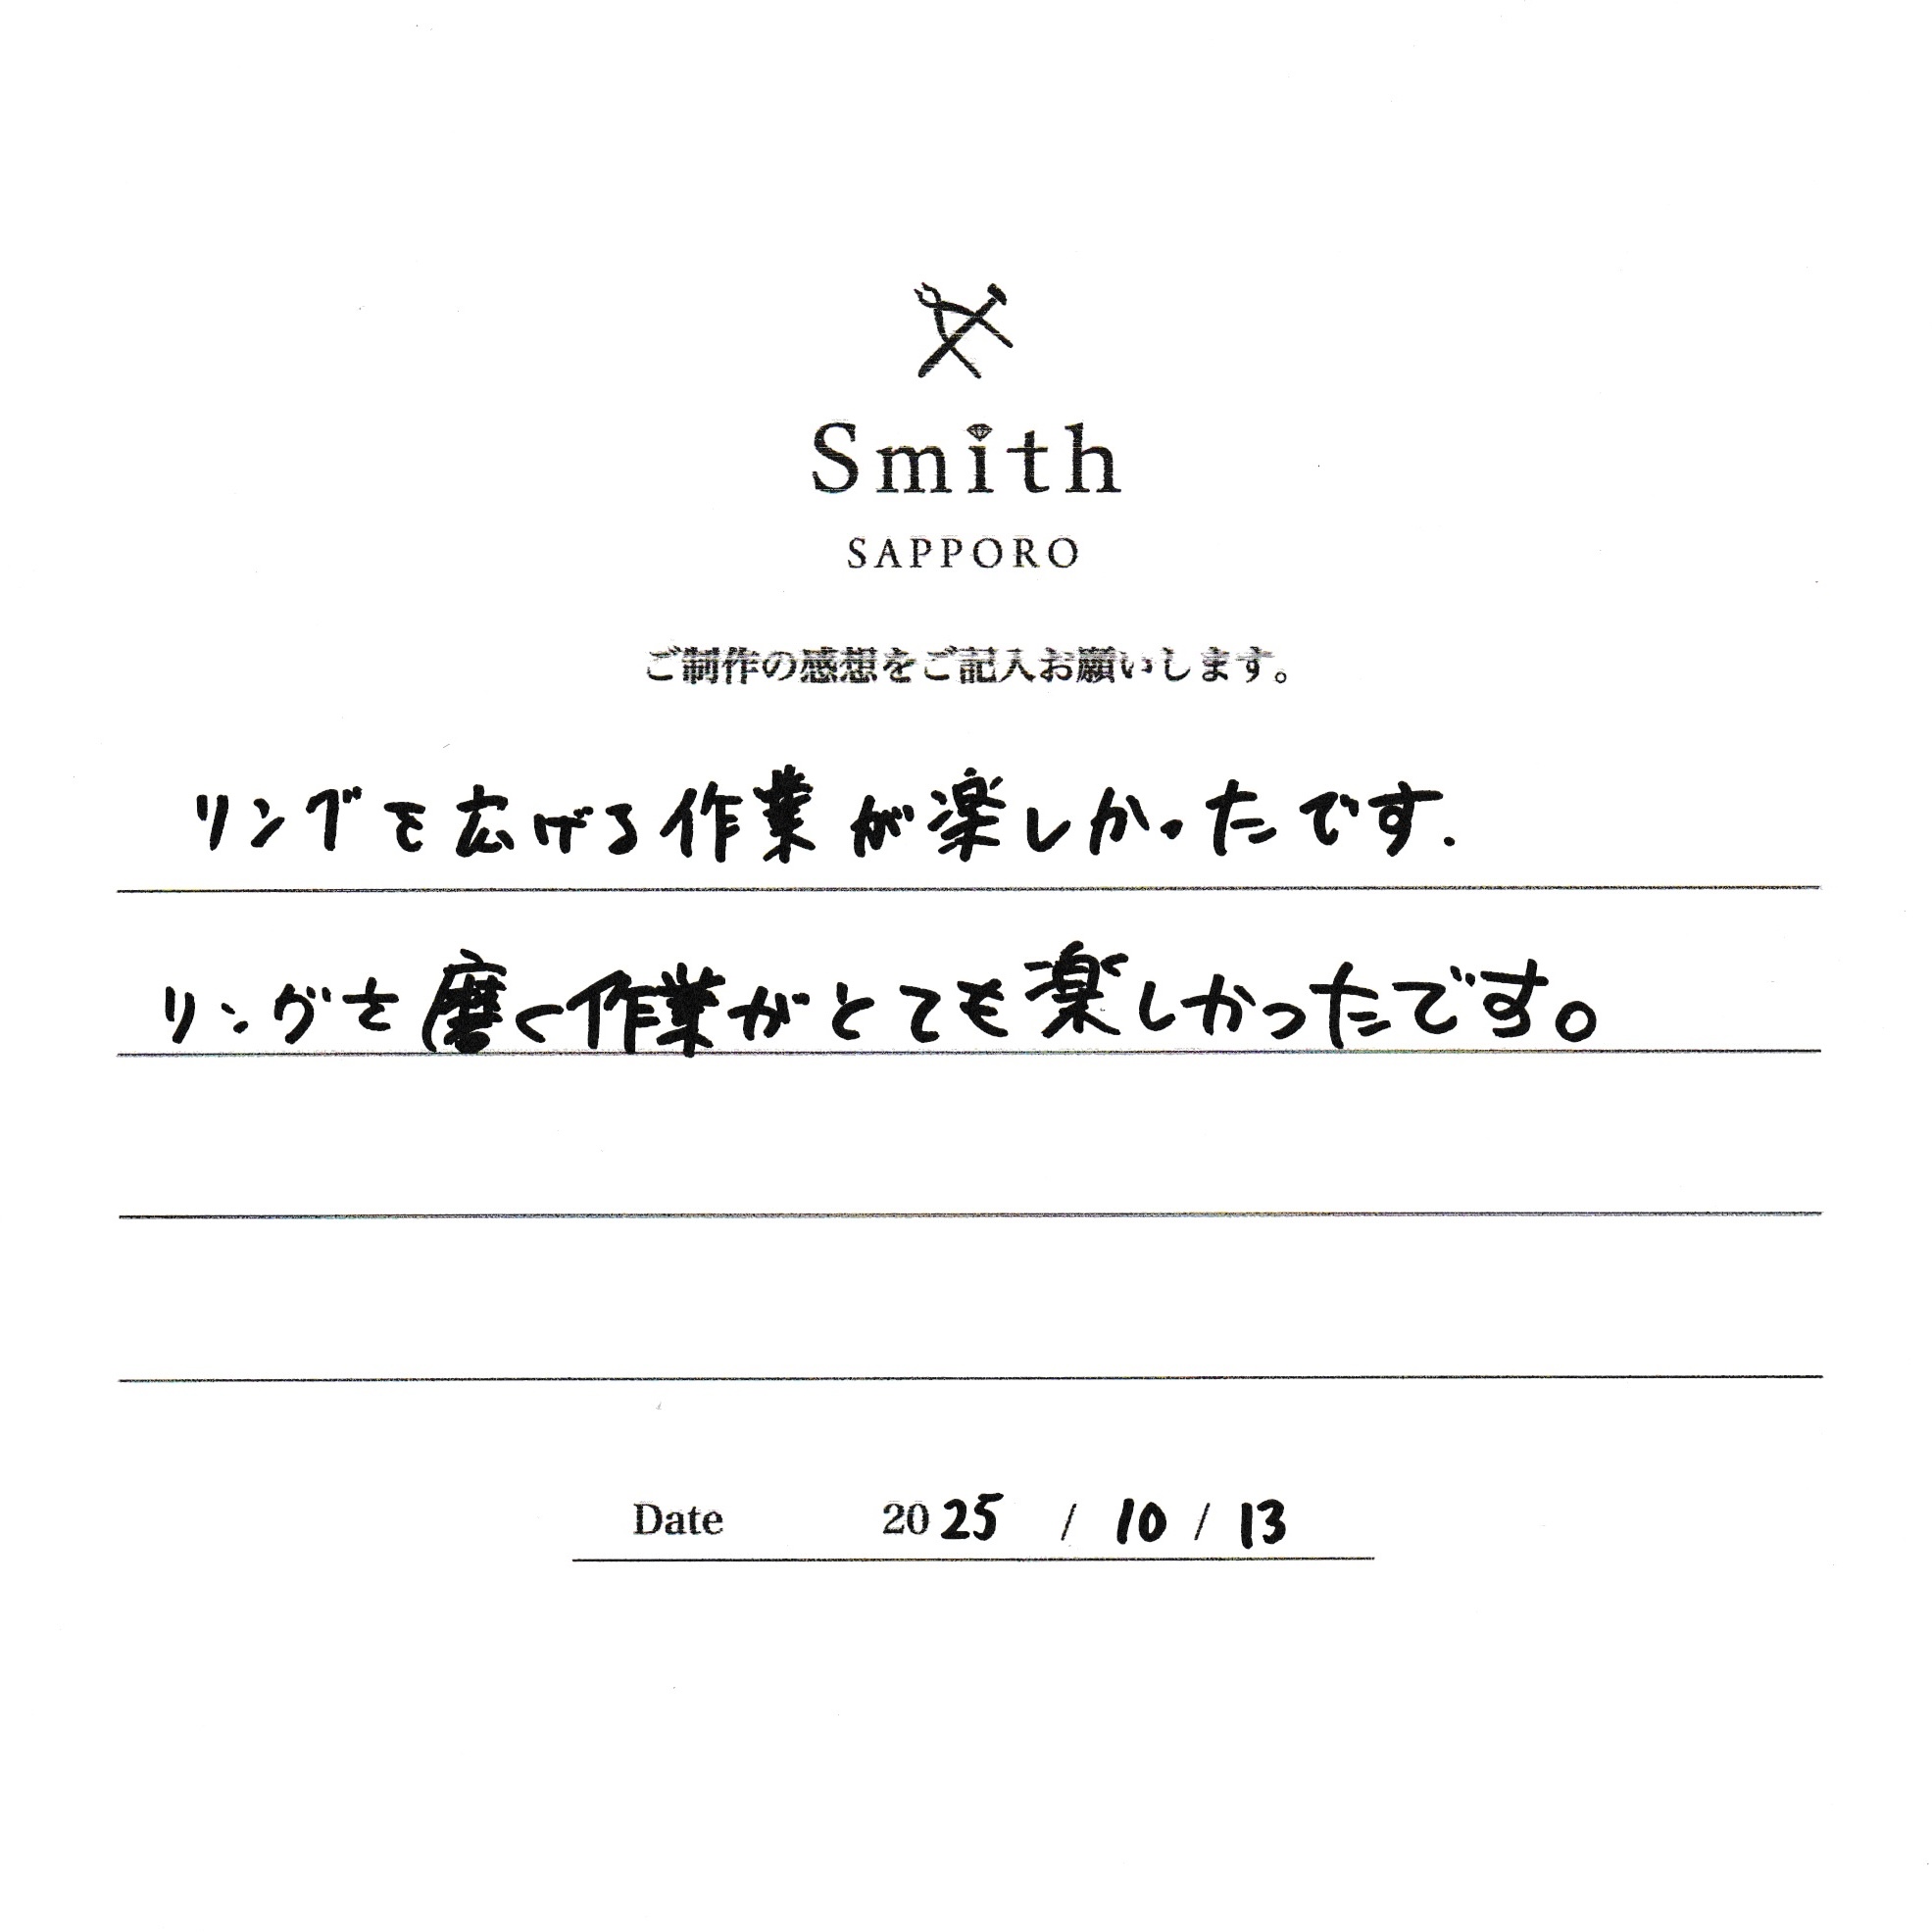 Smith
SAPPORO
ご制作の感想をご記入お願いします。
リングを広げる作業が楽しかったです.
リングを磨く作業がとても楽しかったです。
Date 2025 / 10 / 13